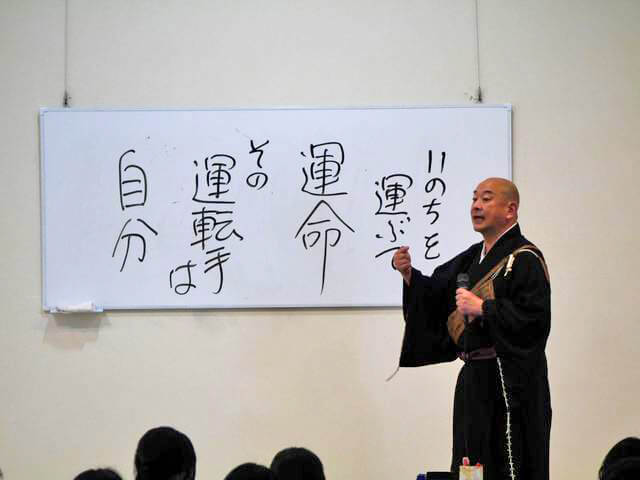 いのちを
運ぶ
運命
その
運転手は
自分